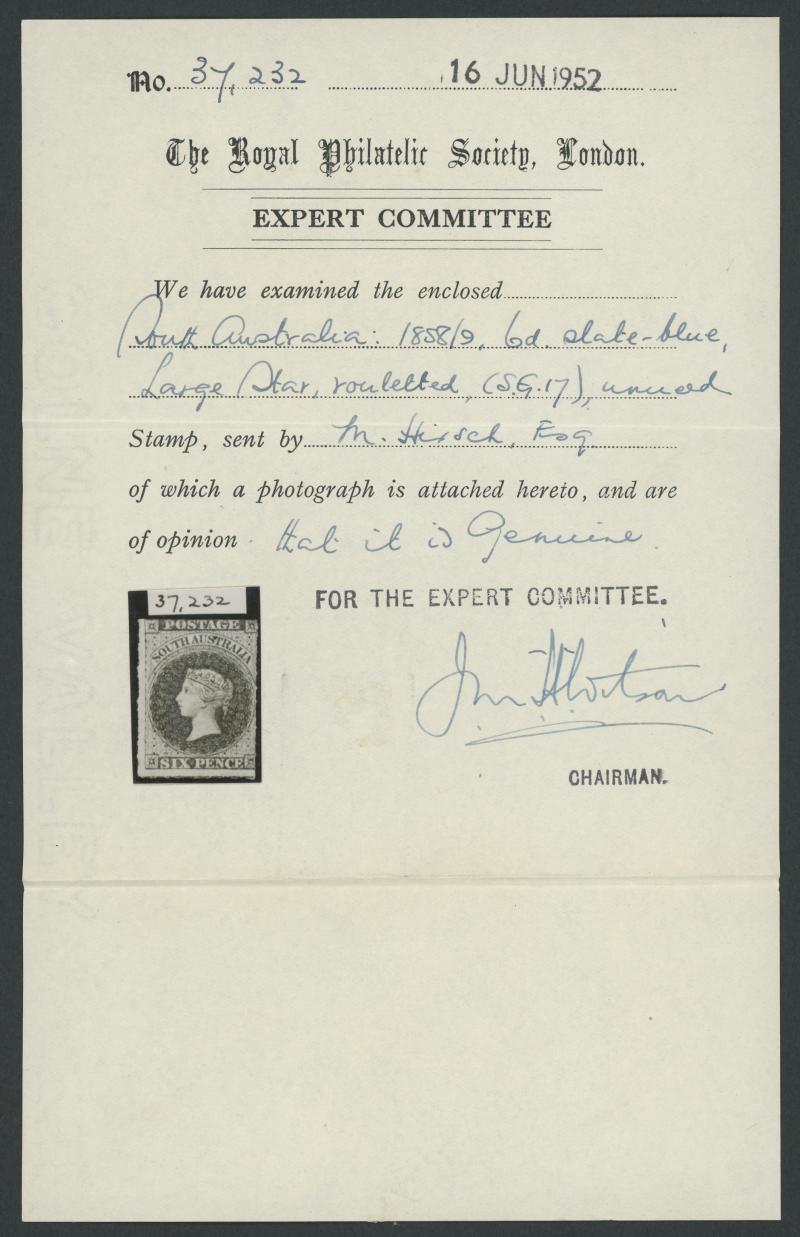 No. 37,232 16 JUN 1952
The Royal Philatelic Society, London.
EXPERT COMMITTEE
We have examined the enclosed
South Australia: 1858/9, 6d. slate-blue,
Large Star, rouletted, (S.G.17), unused
Stamp, sent by M. Hirsch, Esq
of which a photograph is attached hereto, and are
of opinion that it is Genuine.
37,232
POSTAGE
SOUTH AUSTRALIA
SIX PENCE
FOR THE EXPERT COMMITTEE.
CHAIRMAN.